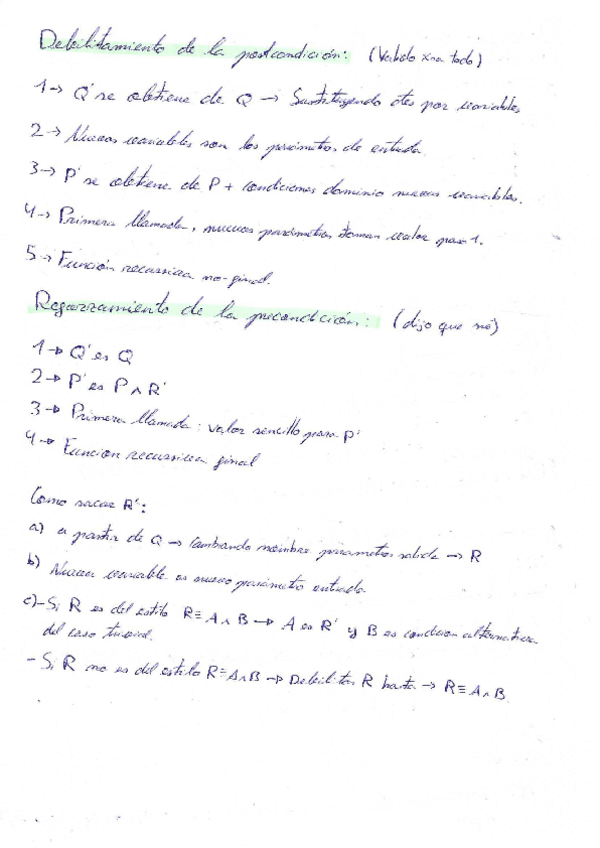 Debilitamiento de la postcondición: (Valido xra todo)
1→ Q' se obtiene de Q → Sustituyendo ctes por variables
2→ Nuevas variables son los parámetros de entrada.
3→ P' se obtiene de P + condiciones dominio nuevas variables.
4→ Primera llamada, nuevos parámetros toman valor paso 1.
5→ Función recursiva no-final.
Reforzamiento de la precondición: (dijo que no)
1→ Q' es Q
2→ P' es P ∧ R'
3→ Primera llamada: valor sencillo para P'
4→ Función recursiva final
Como sacar R':
a) a partir de Q → Cambiando nombre parametros salida → R
b) Nueva variable es nuevo parámetro entrada
c) - Si R es del estilo R≡A∧B → A es R' y B es condicion alternativa
del caso trivial.
- Si R no es del estilo R≡A∧B → Debilitar R hasta → R≡A∧B